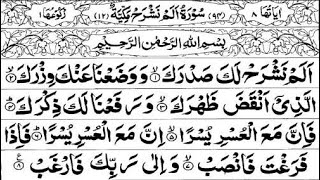 اٰيَاتُهَا ٨ (٩٤) سُوْرَةُ اَلَمْ نَشْرَحْ مَكِّيَّةٌ (١٢) رُكُوْعُهَا ١
بِسْمِ اللهِ الرَّحْمٰنِ الرَّحِيْمِ
اَلَمْ نَشْرَحْ لَكَ صَدْرَكَ ۙ﴿١﴾ وَوَضَعْنَا عَنْكَ وِزْرَكَ ۙ﴿٢﴾
الَّذِيْٓ اَنْقَضَ ظَهْرَكَ ۙ﴿٣﴾ وَرَفَعْنَا لَكَ ذِكْرَكَ ؕ﴿٤﴾
فَاِنَّ مَعَ الْعُسْرِ يُسْرًا ۙ﴿٥﴾ اِنَّ مَعَ الْعُسْرِ يُسْرًا ؕ﴿٦﴾ فَاِذَا
فَرَغْتَ فَانْصَبْ ۙ﴿٧﴾ وَاِلٰى رَبِّكَ فَارْغَبْ ﴿٨﴾